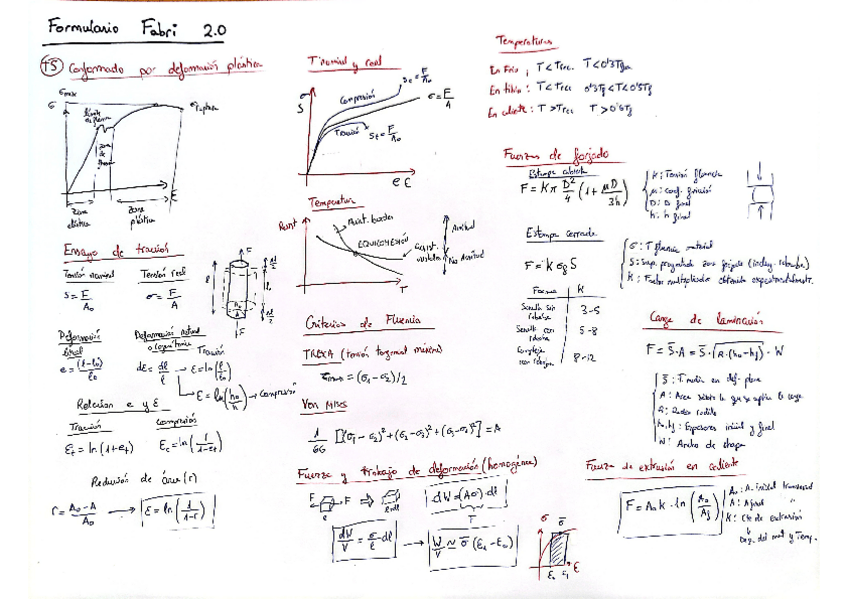 Formulario Fabri 2.0
T5 Conformado por deformación plástica
σmax
σ
Zona elástica
Zona plástica
ε
Ensayo de tracción
Tensión nominal
S = F/A₀
Tensión real
σ = F/A
Deformación lineal
e = (l-l₀)/l₀
Deformación natural o logarítmica
Tracción
dε = dl/l → ε = ln(l/l₀)
ε = ln(h₀/h) → Compresión
Relación e y ε
Tracción
εt = ln(1+et)
Compresión
εc = ln(1/(1-ec))
Reducción de área (r)
r = (A₀-A)/A₀ → ε = ln(1/(1-r))
T. nominal y real
σ
S
Compresión
Sc = F/A₀
σ = F/A
Tracción
St = F/A₀
e ε
Temperatura
Resist
EQUICOHESIÓN
T
Criterios de Fluencia
TRESCA (tensión tangencial máxima)
= (σ₁-σ₂)/2
Von Mises
1/6G [(σ₁-σ₂)²+(σ₂-σ₃)²+(σ₃-σ₁)²] = A
Fuerza y trabajo de deformación (homogénea)
F F
l
l+dl
dW = (Aσ)·dl
dW/V = σ/l · dl → W/V ≃ σ̄ (ε₁-ε₀)
σ
σ̄
ε₀ ε₁ ε
Temperaturas
En Frío: T < Trec. T < 0'3Tf
En tibio: T < Trec 0'3Tf < T < 0'5Tf
En caliente: T > Trec T > 0'5Tf
Fuerzas de forjado
Estampa abierta
F = K π D²/4 (1 + μD/3h)
K: Tensión fluencia
μ: coef. fricción
D: D final
h: h final
Estampa cerrada
F = K σf S
σ: T fluencia material
S: Sup. proyectada zona forjada (incluy. rebaba)
K: Factor multiplicador obtenido experimentalment.
Forma K
Sencilla sin rebaba 3-5
Sencilla con rebaba 5-8
Compleja con rebaba 8-12
Carga de laminación
F = S̄·A = S̄·√(R·(h₀-hf)) · W
S̄: T media en def. plana
A: Area sobre la que se aplica la carga
R: Radio rodillo
h₀, hf: Espesores inicial y final
W: Ancho de chapa
Fuerza de extrusión en caliente
F = A₀ K · ln(A₀/Af)
A₀: A. inicial transversal
A: A final "
K: Cte de extrusión
Dep. del mat y Temp.